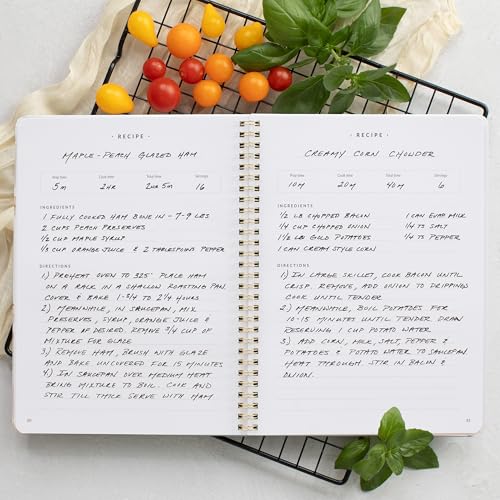 · RECIPE ·
MAPLE-PEACH GLAZED HAM
Prep time Cook time Total time Servings
5m 2hr 2hr 5m 16
INGREDIENTS
1 FULLY COOKED HAM BONE IN - 7-9 LBS
2 CUPS PEACH PRESERVES
1/2 CUP MAPLE SYRUP
1/3 CUP ORANGE JUICE & 2 TABLESPOONS PEPPER
DIRECTIONS
1) PREHEAT OVEN TO 325° PLACE HAM
ON A RACK IN A SHALLOW ROASTING PAN.
COVER & BAKE 1-3/4 TO 2 1/4 HOURS
2) MEANWHILE, IN SAUCEPAN, MIX
PRESERVES, SYRUP, ORANGE JUICE &
PEPPER IF DESIRED. REMOVE 3/4 CUP OF
MIXTURE FOR GLAZE
3) REMOVE HAM, BRUSH WITH GLAZE
AND BAKE UNCOVERED FOR 15 MINUTES
4) IN SAUCEPAN OVER MEDIUM HEAT
BRING MIXTURE TO BOIL. COOK AND
STIR TILL THICK SERVE WITH HAM
· RECIPE ·
CREAMY CORN CHOWDER
Prep time Cook time Total time Servings
10m 20m 40m 6
INGREDIENTS
1/2 LB CHOPPED BACON 1 CAN EVAP. MILK
1/4 CUP CHOPPED ONION 1/4 TS SALT
1 1/2 LBS GOLD POTATOES 1/4 TS PEPPER
1 CAN CREAM STYLE CORN
DIRECTIONS
1) IN LARGE SKILLET, COOK BACON UNTIL
CRISP. REMOVE, ADD ONION TO DRIPPINGS
COOK UNTIL TENDER
2) MEANWHILE, BOIL POTATOES FOR
10-15 MINUTES UNTIL TENDER DRAIN
RESERVING 1 CUP POTATO WATER
3) ADD CORN, MILK, SALT, PEPPER &
POTATOES & POTATO WATER TO SAUCEPAN.
HEAT THROUGH. STIR IN BACON &
ONION.